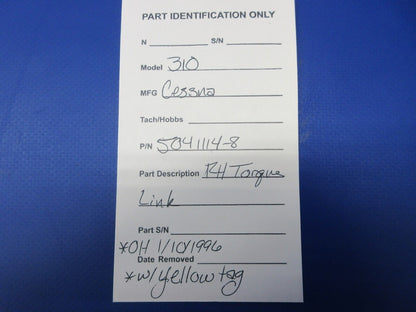 PART IDENTIFICATION ONLY
N S/N
Model 310
MFG Cessna
Tach/Hobbs
P/N 5041114-8
Part Description RH Torque
Link
Part S/N
*OH 1/10/1996
Date Removed
*w/yellow tag